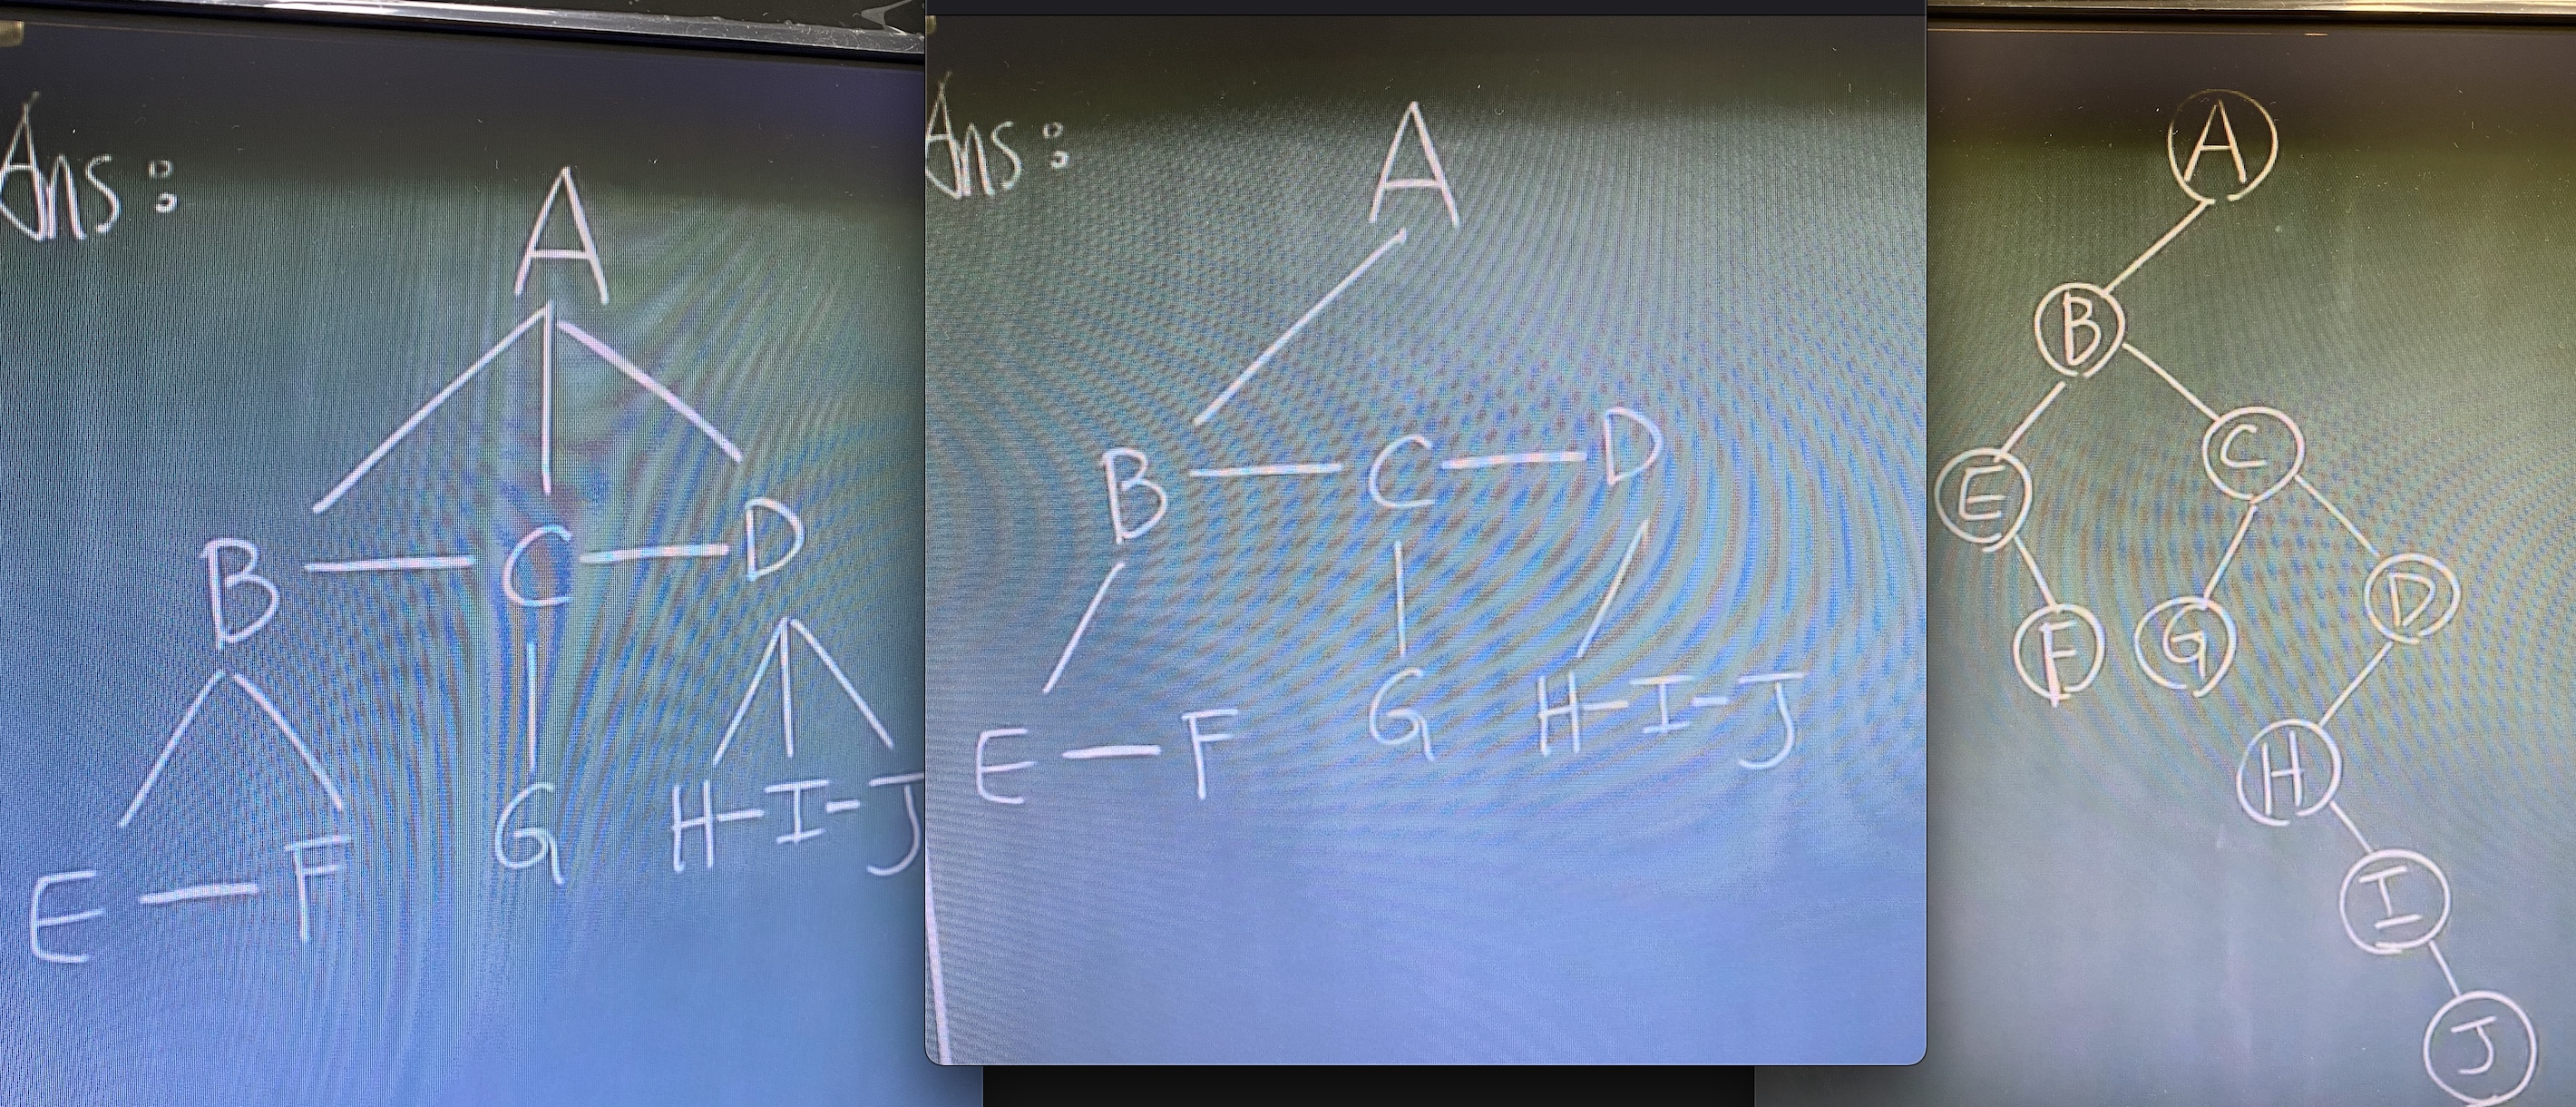 Ans:
A
B C D
E F G H-I-J
Ans:
A
B C D
E F G H-I-J
A
B
C
E
D
F G
H
I
J